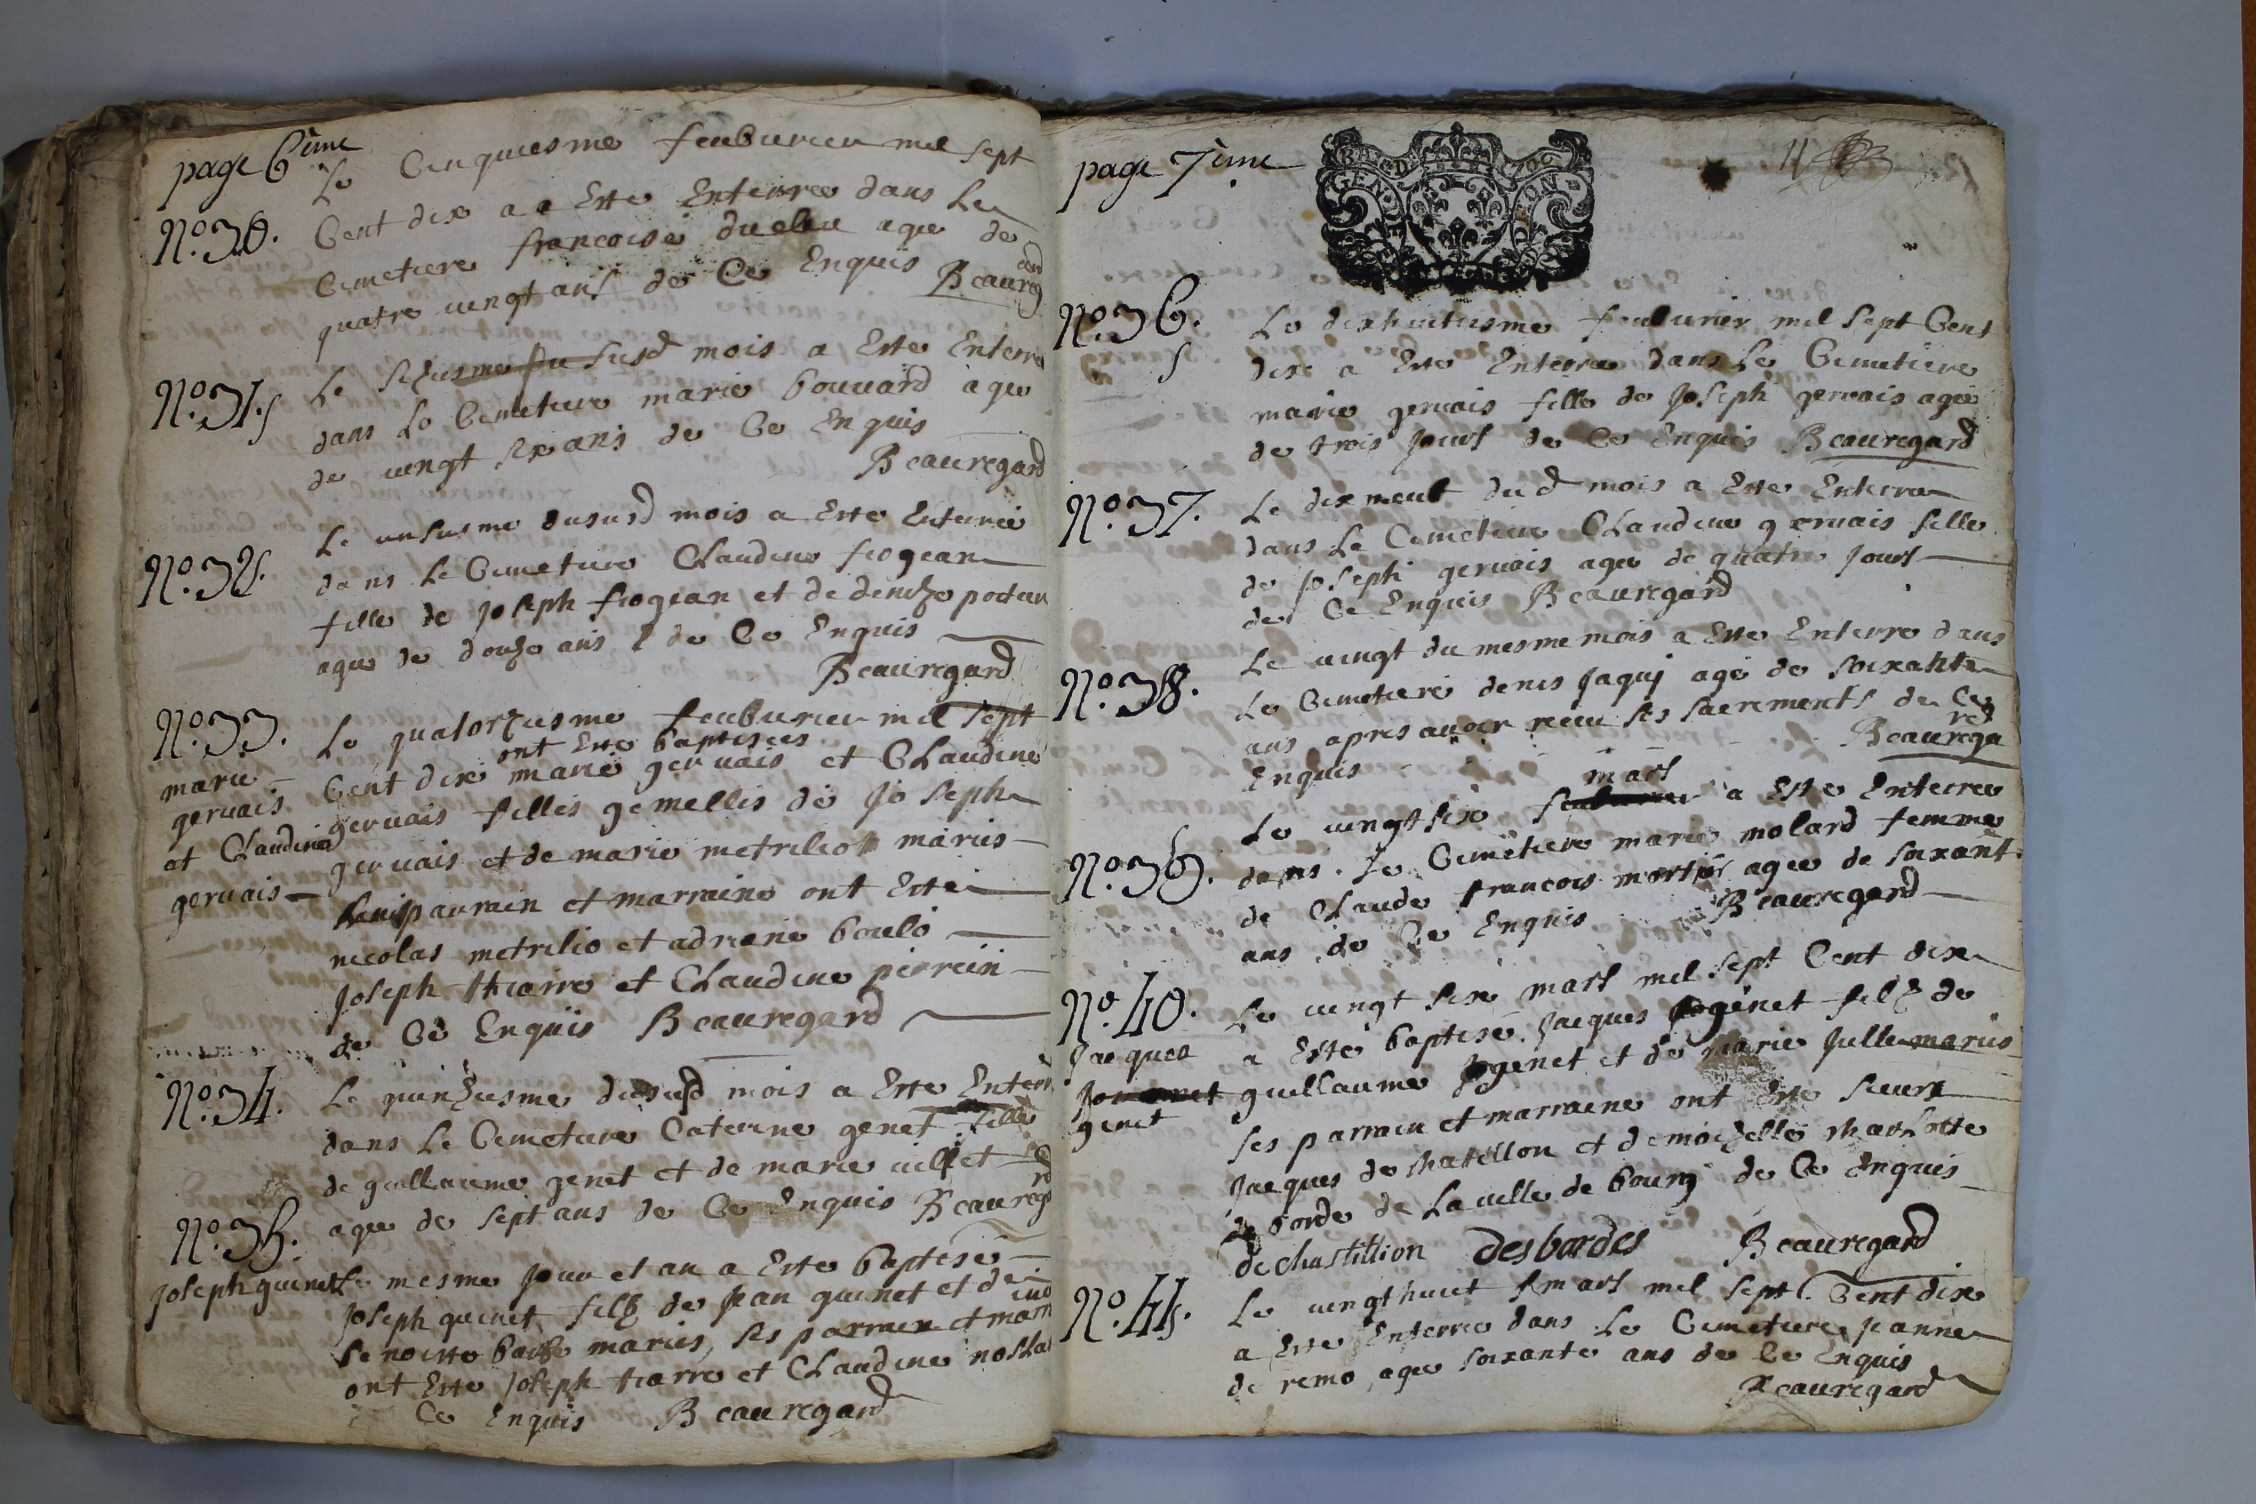 page 6ème
Le Cinquiesme feuburier mil sept
N.º 30. Cent dix a a Este Enterree dans Le
Cimetiere francoise agee de
quatre uingt ans de Ce Enquis Beauregard
N.º 31. Le sesiesme du susd mois a Este Enterre
dans Le Cimetiere marie bouuard agee
de uingt six ans de Ce Enquis
Beauregard
N.º 32. Le unsiesme dususd mois a Este Enterree
dans Le Cimetiere Claudine frogean
fille de Joseph frogean et de denize
agee de douze ans de Ce Enquis
Beauregard
N.º 33. Le quatorziesme feuburier mil sept
ont Este baptisees
marie Cent dix marie geruais et Claudine
geruais geruais filles gemelles de Joseph
et Claudine geruais et de marie metrilio maries
geruais Leurs paurain et marraine ont Este
nicolas metrilio et adriene boulo
Joseph thiarre et Claudine perrein
de Ce Enquis Beauregard
N.º 34. Le quinziesme dususd mois a Este Enterr
dans Le Cimetiere Caterine genet fille
de guillaume genet et de marie uillet
agee de sept ans de Ce Enquis Beauregard
N.º 35.
Joseph quinet Le mesme Jour et an a Este baptisé
Joseph quinet filz de Jean quinet et de
maries, ses parrain et marr
ont Este Joseph tiarre et Claudine
Ce Enquis Beauregard
page 7ème
GEN 11
N.º 36. Le dixhuitiesme feuburier mil sept Cent
dix a Este Enterree dans Le Cimetiere
marie geruais fille de Joseph geruais agee
de trois Jours de Ce Enquis Beauregard
N.º 37. Le dixneuf dud mois a Este Enterree
dans Le Cimetiere Claudine geruais fille
de Joseph geruais agee de quatre Jours
de Ce Enquis Beauregard
Le uingt du mesme mois a Este Enterre dans
N.º 38. Le Cimetiere denis Jaquy agé de soixante
ans apres auoir receu ses sacrements de Ce
Enquis Beauregard
mars
Le uingt six feuburier a Este Enterree
N.º 39. dans Le Cimetiere marie molard femme
de Claude francois mortier agee de soixante
ans de Ce Enquis Beauregard
N.º 40. Le uingt six mars mil sept Cent dix
Jacques a Esté baptisé Jacques genet filz de
genet guillaume genet et de marie Juille maries
ses parrain et marraine ont Este sieurs
Jacques de chatillon et demoizelle charlotte
de borde de La uille de bourg de Ce Enquis
de chastillion Desbordes Beauregard
N.º 41. Le uingt huict mars mil sept Cent dix
a Este Enterree dans Le Cimetiere Janne
de remo agee soixante ans de Ce Enquis
Beauregard